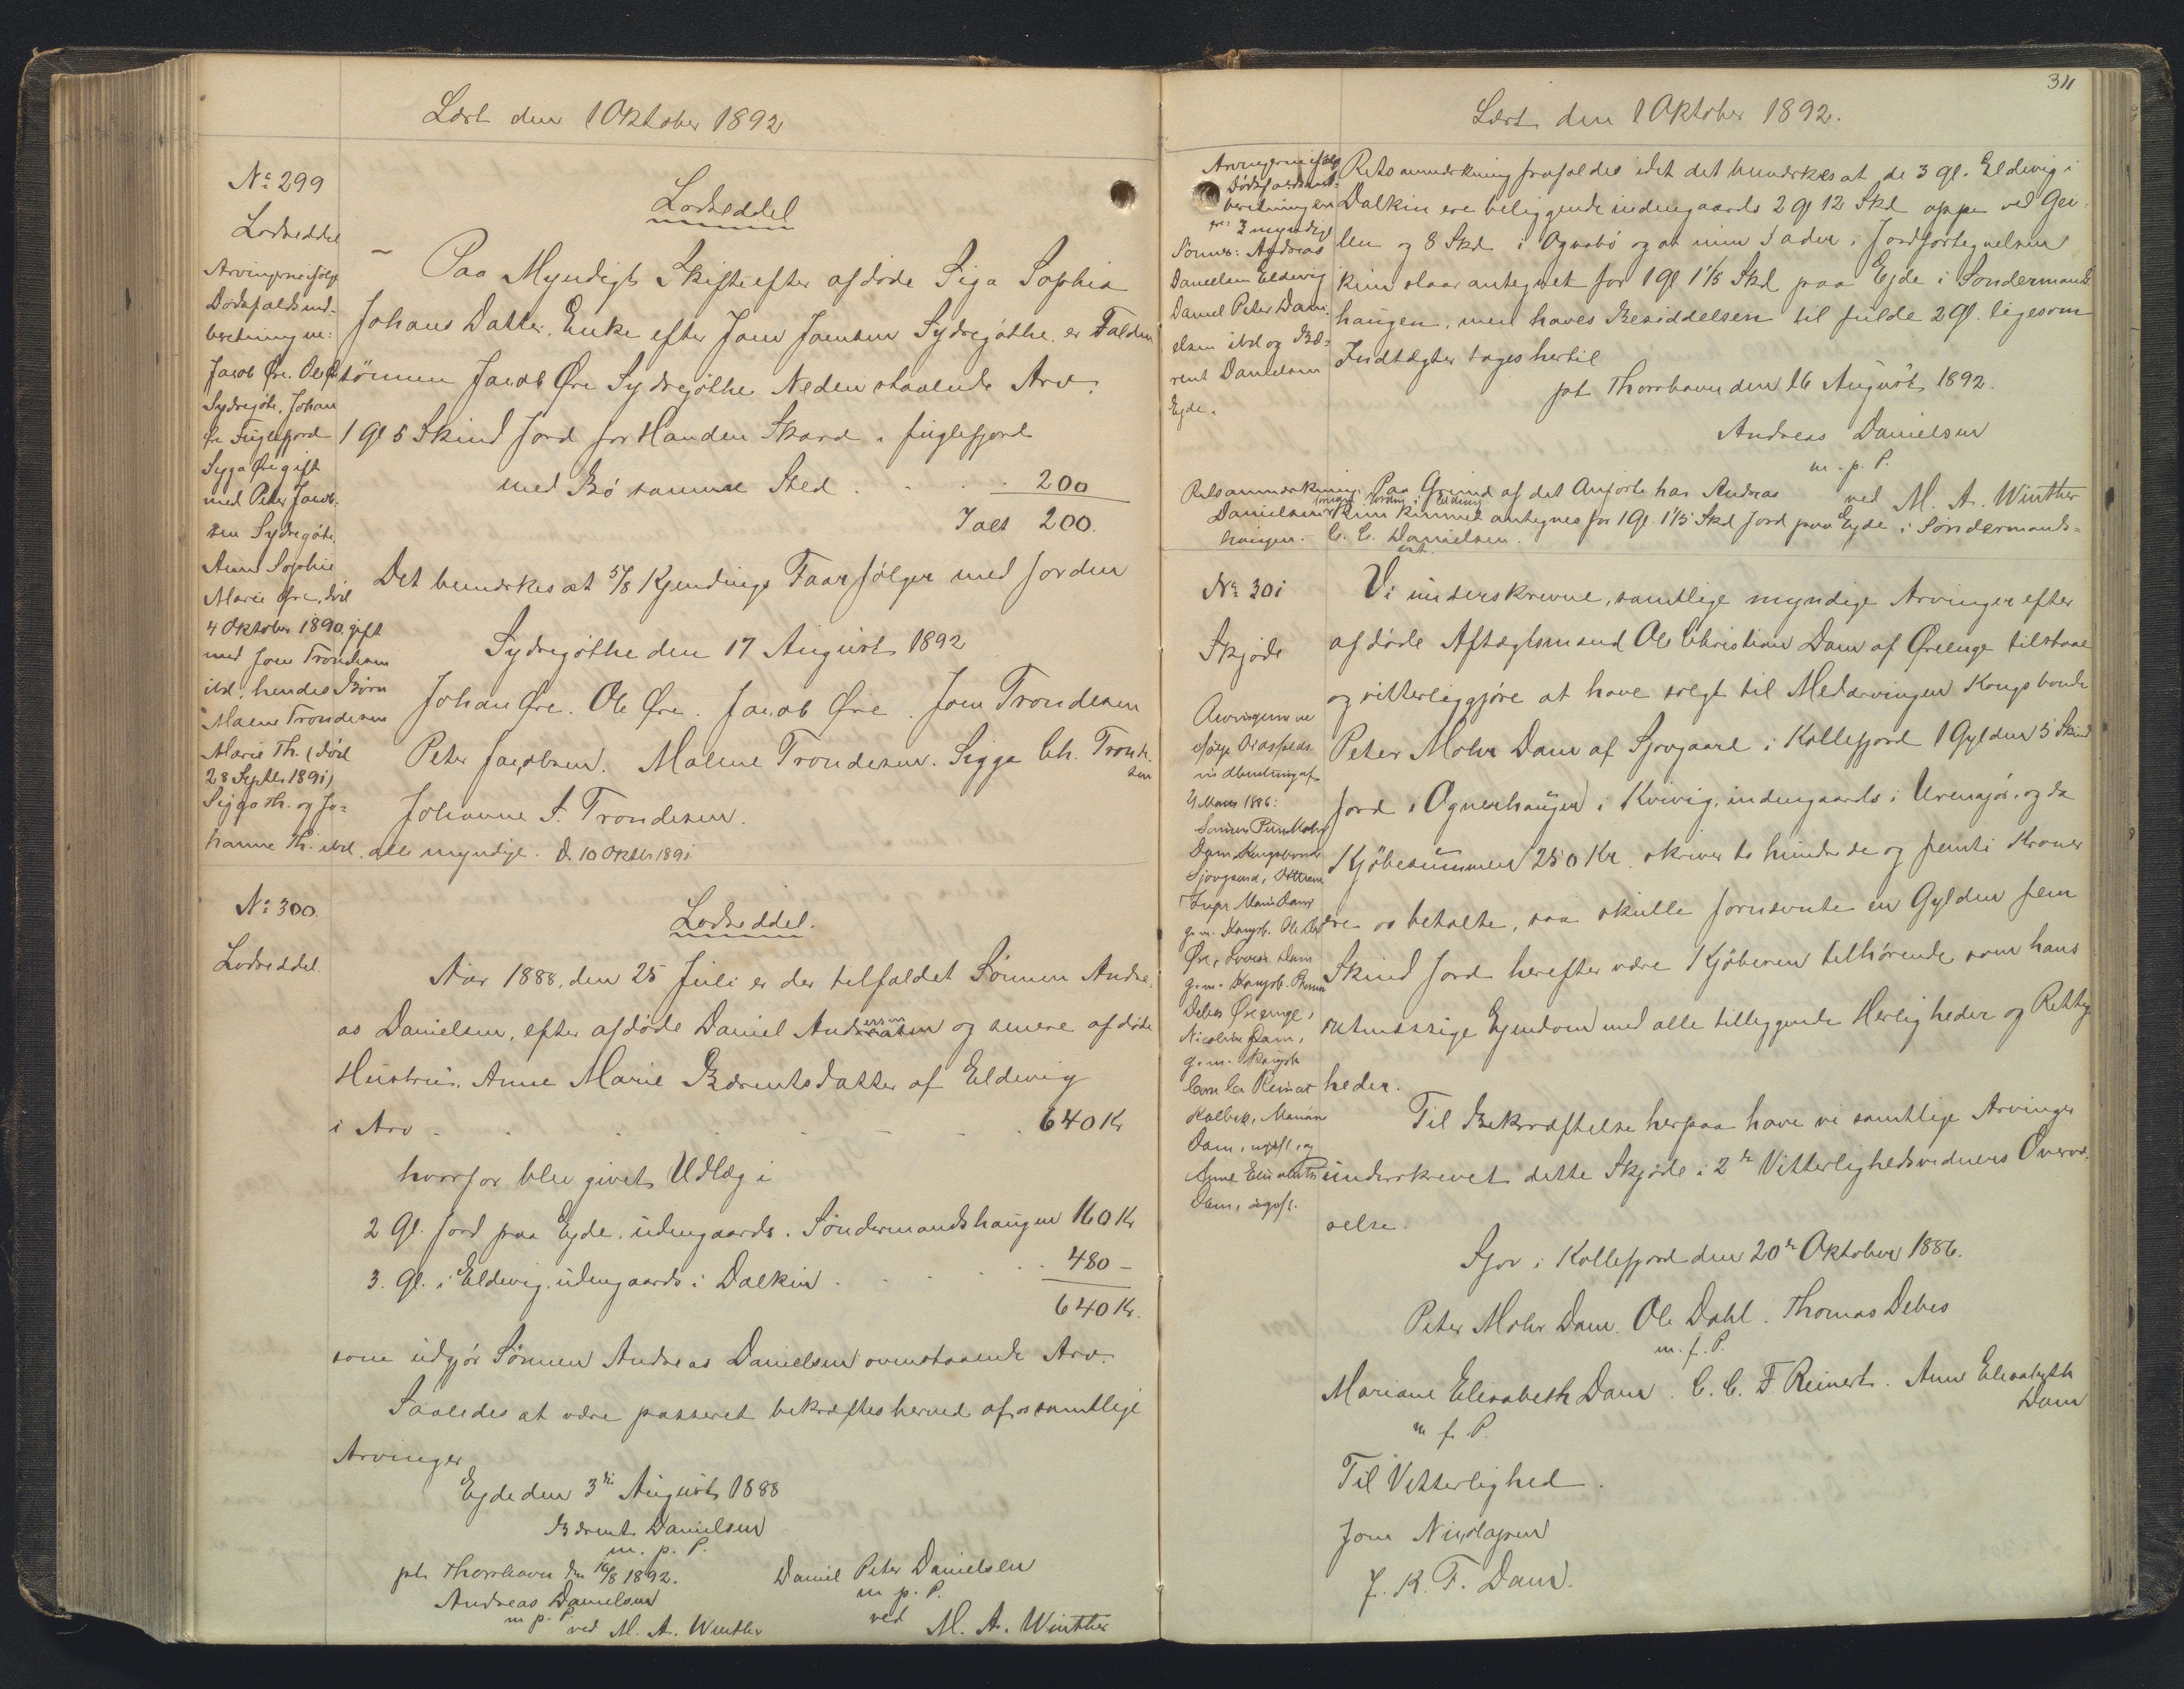 Læst den 1 Oktober 1892
No 299
Lodseddel
Arvingerne ifølge
Dødsfaldsind-
beretning ere:
Jacob Øre, Ole Øre
Sydregøte, Johan
Øre Fuglefjord
Sigga Øre gift
med Peter Jacob-
sen Sydregøte,
Anne Sophie
Marie Øre, død
4 Oktober 1890, gift
med Joen Trondesen
ibd., hendes Børn
Malene Trondesen
Marie Th. (død
28 Septbr 1891)
Sigga Th. og Jo-
hanne Th. ibd. alle myndige. D. 10 Oktbr 1891
Lodseddel
Paa Myndigt Skifte efter afdøde Siga Sophia
Johans Datter, Enke efter Joen Joensen Sydregøthe, er Falden
Sønnen Jacob Øre Sydregøthe Nedenstaaende Arv:
1 Gl 5 Skind Jord for Handen Skard i Fuglefjord
med Bø samme Sted . . . . 200
Ialt 200.
Det bemærkes at 5/8 Kjendings Faar følger med Jorden
Sydregøthe den 17 August 1892
Johan Øre. Ole Øre. Jacob Øre. Joen Trondesen
Peter Jacobsen. Malene Trondesen. Sigga Ch. Tronde-
sen
Johanne S. Trondesen.
No 300.
Lodseddel.
Lodseddel.
Aar 1888, den 25 Juli er der tilfaldet Sønnen Andre-
as Danielsen, efter afdøde Daniel Andreasen ersen og senere afdøde
Hustrue, Anne Marie Bærentsdatter af Eldevig
i Arv . . . . . . 640 Kr
hvorfor blev givet Udlæg i
2 Gl. Jord paa Ejde, udengaards. Søndermandshaugen 160 Kr
3. Gl. i Eldevig, udengaards i Dalkin . . . . 480 -
640 Kr.
som udgjør Sønnen Andreas Danielsen ovenstaaende Arv.
Saaledes at være passeret bekræftes herved af os samtlige
Arvinger
Ejde den 3die August 1888
Bærent Danielsen
m. p. P.
pt. Thorshavn den 16/8 1892.
Andreas Danielsen
m. p. P.
ved M. A. Winther
Daniel Peter Danielsen
m. p. P.
ved M. A. Winther
311
Læst den 1 Oktober 1892.
Arvingerne ifølge
Dødsfaldsind-
beretningen
ere: 3 myndige
Sønner: Andreas
Danielsen Eldevig
Daniel Peter Dani-
elsen ibd og Bæ-
rent Danielsen
Ejde.
Retsanmærkning frafaldes idet det bemærkes at de 3 gl. Eldevig i
Dalkin ere beliggende indengaards 2 gl 12 Skd oppe ved Gei-
len og 8 Skd i Ognabø og at min Fader i Jordfortegnelsen
kun staar antegnet for 1 gl 1 1/5 Skd paa Ejde i Søndermands-
haugen, men haves Besiddelsen til fulde 2 gl. ligesom
Indtægter tages hertil
pt. Thorshavn den 16 August 1892.
Andreas Danielsen
m. p. P.
ved M. A. Winther
Retsanmærkning. Paa Grund af det Anførte har Andreas
Danielsen kun kunnet antegnes for 1 Gl. 1 1/5 Skd Jord paa Ejde i Søndermands-
haugen. C. C. Danielsen.
cst.
No 301
Skjøde
Arvingerne ere
ifølge Dødsfalds-
indberetning af
Marts 1886:
Sønnen Peter Mohr
Dam, Kongsbonde
Sjovgaard, Døttrene
Inger Marie Dam
g. m. Kongsb. Ole Dahl
Øre, Lovise Dam
g. m. Kongsb. Thomas
Debes Øreenge,
Nicoline Dam,
g. m. Kongsb.
Reinert
Kalbak, Mariane
Dam, ugift, og
Anne Elisabeth
Dam, ugift.
Vi underskrevne, samtlige myndige Arvinger efter
afdøde Aftægtsmand Ole Christian Dam af Øreenge tilstaae
og vitterliggjøre at have solgt til Medarvingen Kongsbonde
Peter Mohr Dam af Sjovgaard i Kollefjord 1 Gylden 5 Skind
Jord i Ognerhaugen i Kvivig, indengaards i Urenajør, og da
Kjøbesummen 250 Kr. skriver to hundrede og femti Kroner
ere os betalte, saa skulle fornævnte en Gylden fem
Skind Jord herefter være Kjøberen tilhørende som hans
retmæssige Ejendom med alle tilliggende Herligheder og Rettig-
heder.
Til Bekræftelse herpaa have vi samtlige Arvinger
underskrevet dette Skjøde i 2de Vitterlighedsvidners Overvæ-
relse.
Sjov i Kollefjord den 20de Oktober 1886.
Peter Mohr Dam. Ole Dahl. Thomas Debes
m. f. P.
Mariane Elisabeth Dam. C. C. F. Reinert. Anne Elisabeth
Dam
m. f. P.
Til Vitterlighed.
Joen Nicolajsen
J. K. F. Dam.